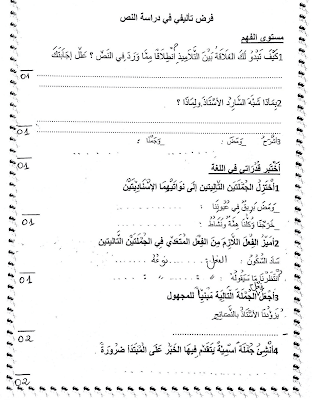 فرض تأليفي في دراسة النص
مستوى الفهم
1كَيْفَ تَبْدُو لَكَ العَلَاقَةُ بَيْنَ التَّلَامِيذِ اُنْطِلَاقًا مِمَّا وَرَدَ فِي النَّصِّ ؟ عَلِّلْ إِجَابَتَكَ
01
2بِمَاذَا شَبَّهَ الشَّارِدُ الأُسْتَاذَ وَلِمَاذَا ؟
01
3اشْرَحْ وَمَضَ :
01
أَخْتَبِرُ قُدُرَاتِي فِي اللُّغَةِ
1أَخْتَزِلُ الجُمْلَتَيْنِ التَّالِيَتَيْنِ إِلَى نَوَاتَيْهِمَا الإِسْنَادِيَّتَيْنِ
_وَمَضَ بَرِيقٌ فِي عُيُونِنَا :
_خَرَجْنَا وَكُلُّنَا هِمَّةٌ وَنَشَاطٌ :
01
2أُمَيِّزُ الفِعْلَ اللَّازِمَ مِنَ الفِعْلِ المُتَعَدِّي فِي الجُمْلَتَيْنِ التَّالِيَتَيْنِ
سَادَ السُّكُونُ : الفعل: نوعه
اُنْتَظَرْنَا مَا سَيَقُولُهُ :
01
3أَجْعَلُ الجُمْلَةَ التَّالِيَةَ مَبْنِيًّا للمجهول
يُزَوِّدُنَا الأُسْتَاذُ بِالنَّصَائِحِ
02
4أُنْشِئُ جُمْلَةً اسْمِيَّةً يَتَقَدَّمُ فِيهَا الخَبَرُ عَلَى المُبْتَدَإِ ضَرُورَةً
02